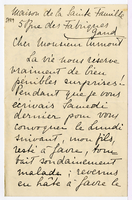 Maison de la Sainte Famille
57 rue des Fabriques
Gand
Cher Monsieur
La vie nous réserve
vraiment de bien
pénibles surprises.
Pendant que je vous
écrivais Samedi
dernier pour vous
convoquer le Lundi
suivant, mon fils,
resté à faire, tom
bait soudainement
malade; revenus
en hâte à faire le